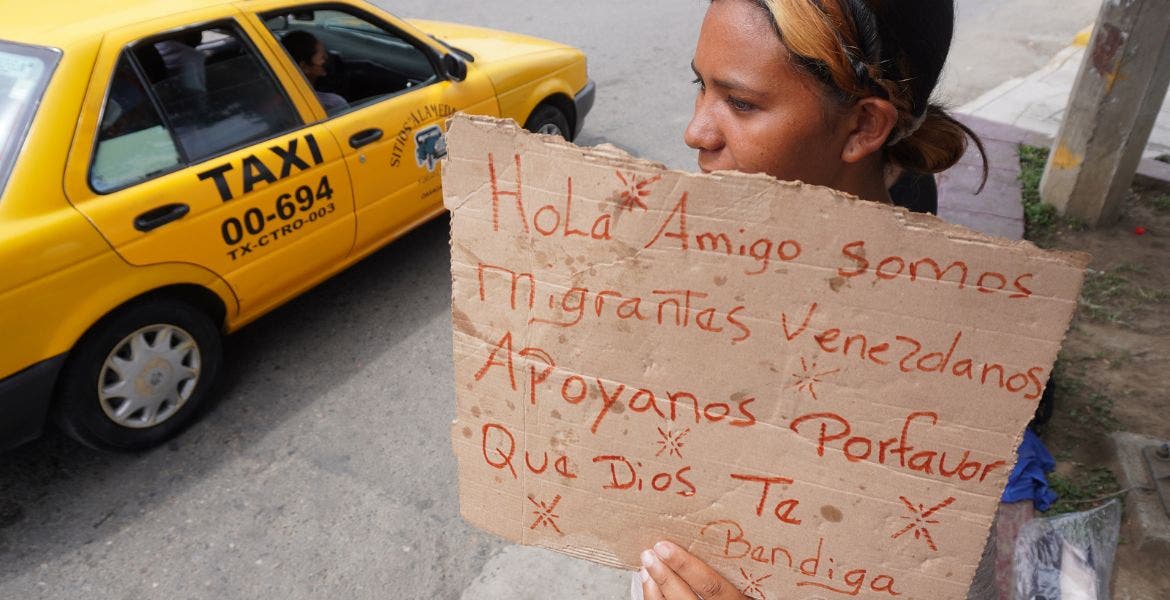 TAXI
00-694
TX-CTRO-003
SITIOS ALAMEDA
HoLa Amigo somos
migrantes Venezolanos
Apoyanos Porfavor
Que Dios Te
Bendiga